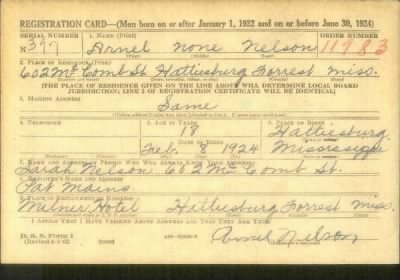 REGISTRATION CARD—(Men born on or after January 1, 1922 and on or before June 30, 1924)
SERIAL NUMBER 1. NAME (Print) ORDER NUMBER
N 397 Arnel none Nelson 11983
2. PLACE OF RESIDENCE (Print)
602 Mc Comb St. Hattiesburg Forrest Miss.
[THE PLACE OF RESIDENCE GIVEN ON THE LINE ABOVE WILL DETERMINE LOCAL BOARD
JURISDICTION; LINE 2 OF REGISTRATION CERTIFICATE WILL BE IDENTICAL]
3. MAILING ADDRESS
Same
4. TELEPHONE 5. AGE IN YEARS 6. PLACE OF BIRTH
18 Hattiesburg
DATE OF BIRTH
Feb. 8 1924 Mississippi
7. NAME AND ADDRESS OF PERSON WHO WILL ALWAYS KNOW YOUR ADDRESS
Sarah Nelson 602 Mc Comb St.
8. EMPLOYER'S NAME AND ADDRESS
Pat Mains
Milner Hotel Hattiesburg Forrest Miss.
I AFFIRM THAT I HAVE VERIFIED ABOVE ANSWERS AND THAT THEY ARE TRUE.
D. S. S. Form 1
Arnel Nelson